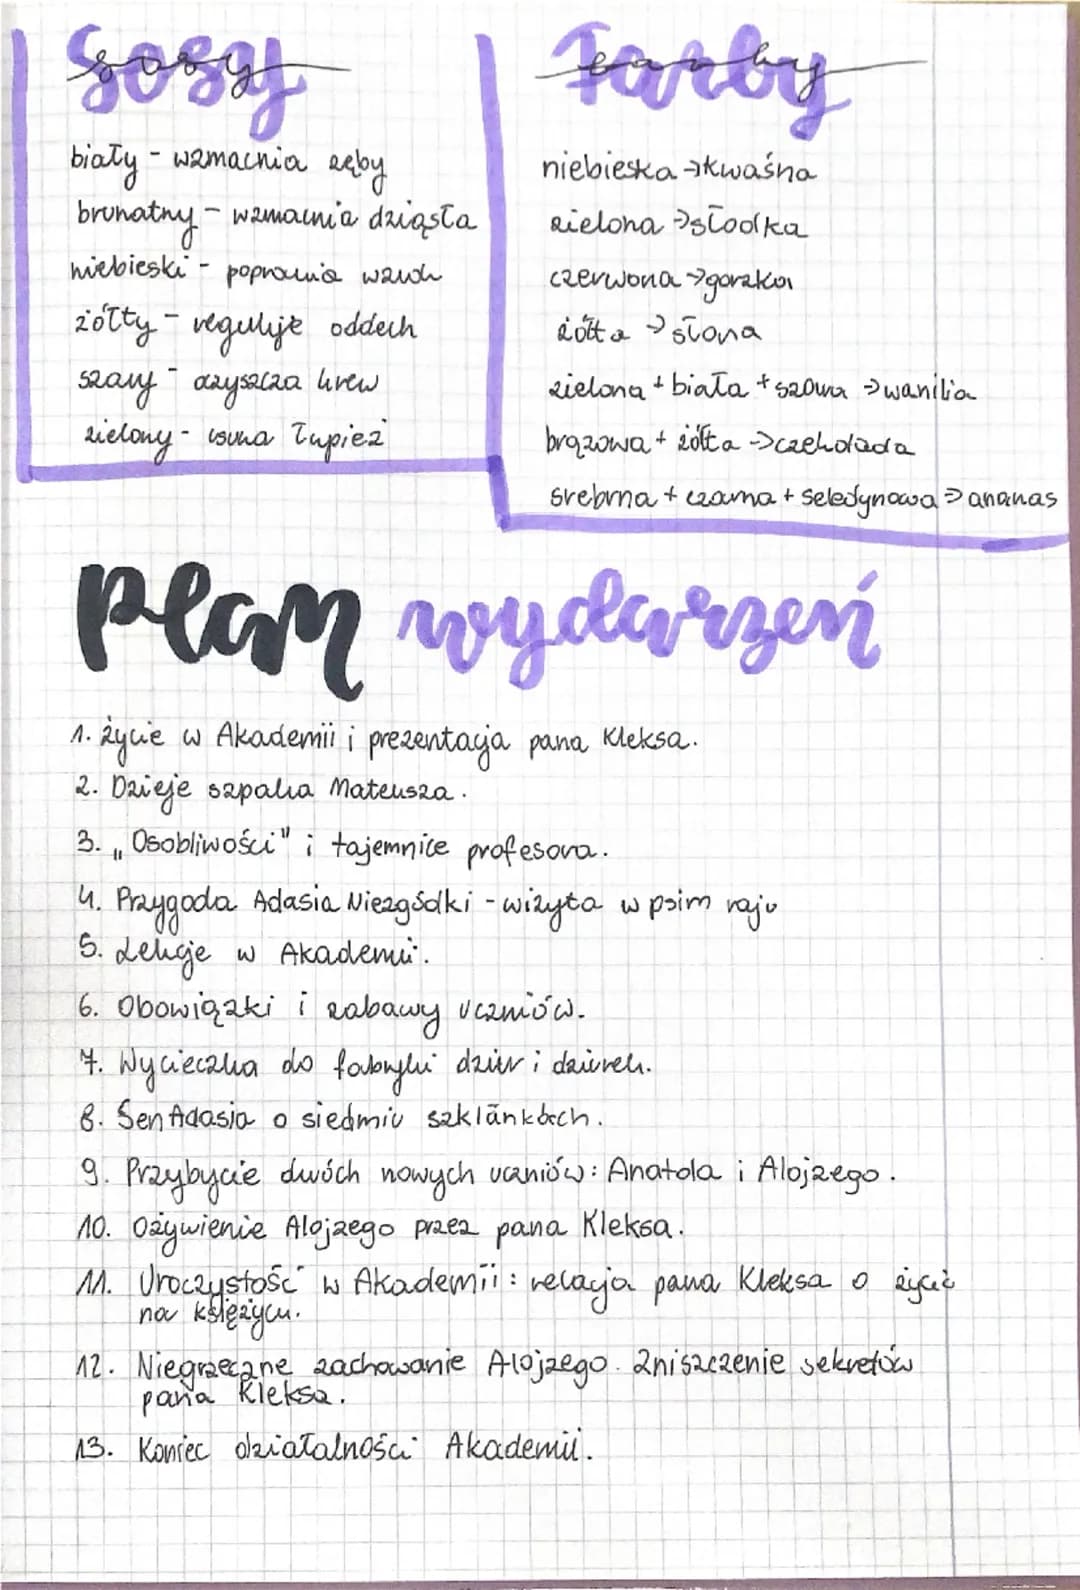 Sosy
biały - wzmacnia zęby
brunatny - wzmacnia dziąsła
niebieski - poprawia wzrok
żółty - reguluje oddech
szary - oczyszcza krew
zielony - usuwa łupież
Farby
niebieska → kwaśna
zielona → słodka
czerwona → gorzka
żółta → słona
zielona + biała + szara → wanilia
brązowa + żółta → czekolada
srebrna + czarna + seledynowa → ananas
plan wydarzeń
1. życie w Akademii i prezentacja pana Kleksa.
2. Dzieje szpaka Mateusza.
3. „Osobliwości" i tajemnice profesora.
4. Przygoda Adasia Niezgódki - wizyta w psim raju
5. Lekcje w Akademii.
6. Obowiązki i zabawy uczniów.
7. Wycieczka do fabryki dziur i dziurek.
8. Sen Adasia o siedmiu szklankach.
9. Przybycie dwóch nowych uczniów: Anatola i Alojzego.
10. Ożywienie Alojzego przez pana Kleksa.
11. Uroczystość w Akademii: relacja pana Kleksa o życiu
na księżycu.
12. Niegrzeczne zachowanie Alojzego. Zniszczenie sekretów
pana Kleksa.
13. Koniec działalności Akademii.